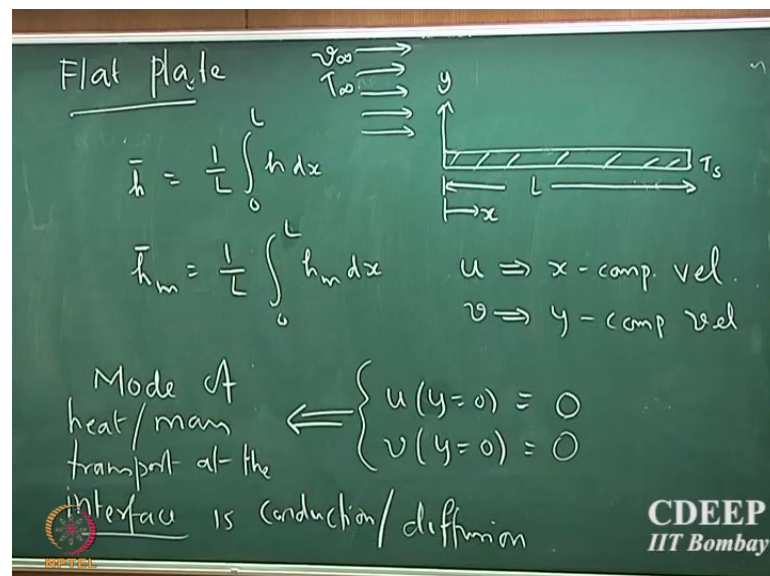 Flat plate
v∞
T∞
y
h̄ = 1/L ∫₀ᴸ h dx
Ts
L
x
h̄m = 1/L ∫₀ᴸ hm dx
u ⇒ x-comp. vel.
v ⇒ y-comp vel
Mode of
heat/mass
transport at the
interface is conduction/diffusion
⇐ { u(y=0) = 0
v(y=0) = 0
NPTEL
CDEEP
IIT Bombay